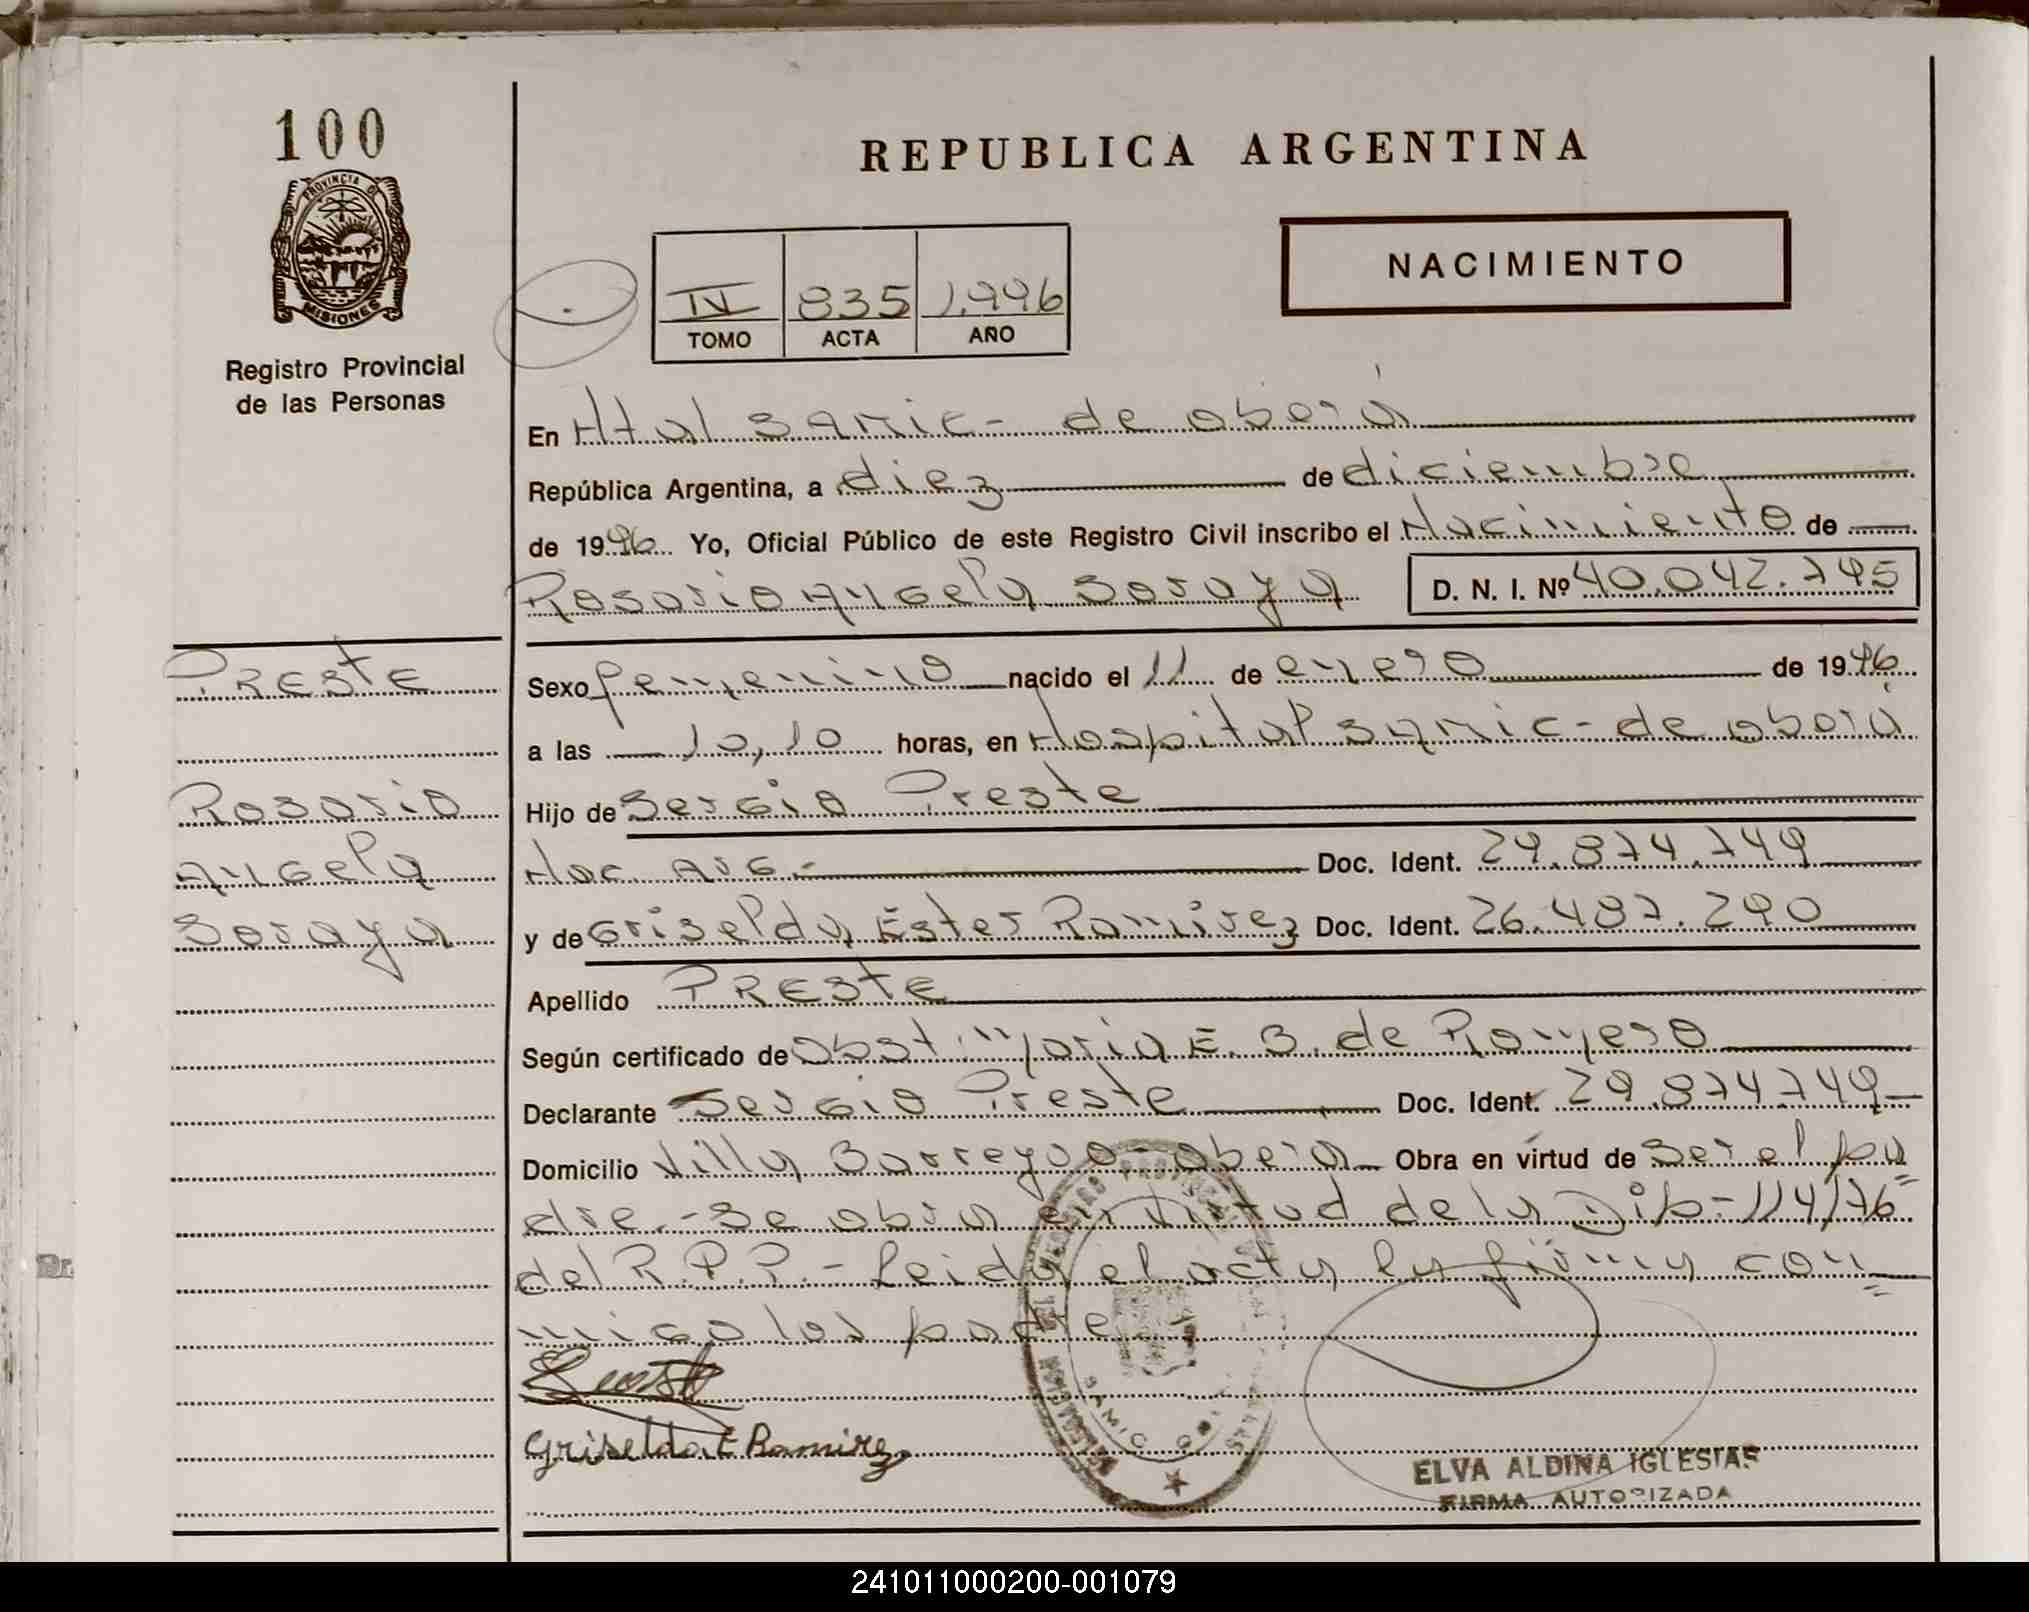 100
PROVINCIA DE
MISIONES
Registro Provincial
de las Personas
REPUBLICA ARGENTINA
NACIMIENTO
IV 835 1.996
TOMO ACTA AÑO
En Htal SAMIC- de oberá
República Argentina, a diez de diciembre
de 1996 Yo, Oficial Público de este Registro Civil inscribo el Nacimiento de
Rosario Angela Soraya D. N. I. Nº 40.042.745
PRESTE
Rosario
Angela
Soraya
Sexo femenino nacido el 11 de enero de 1996
a las 10,10 horas, en Hospital SAMIC- de oberá
Hijo de Sergio Preste
Nac. ARG.- Doc. Ident. 29.874.749
y de Griselda Ester Ramirez Doc. Ident. 26.487.290
Apellido PRESTE
Según certificado de obst. Maria E. B. de Romero
Declarante Sergio Preste Doc. Ident. 29.874.749
Domicilio Villa Barreyro- oberá Obra en virtud de Ser el pa
dre.- Se obra en virtud de la Dip- 114/96
del R.P.P.- Leida el acta la firma con
migo los padre
Griselda E Ramirez
SAMIC
ELVA ALDINA IGLESIAS
FIRMA AUTORIZADA
241011000200-001079